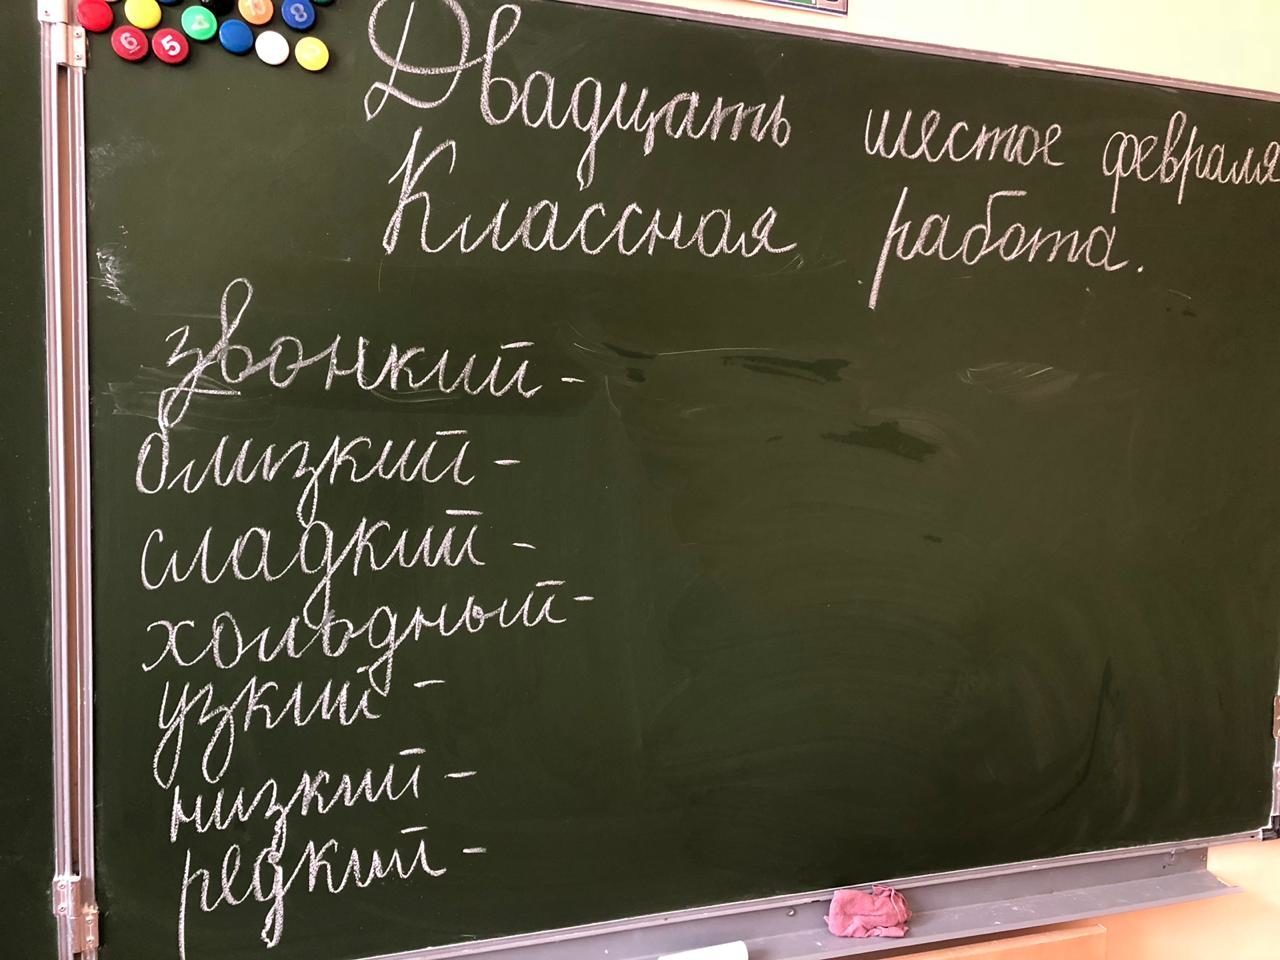 6 5 4 8
Двадцать шестое февраля
Классная работа.
звонкий -
близкий -
сладкий -
холодный -
узкий -
низкий -
редкий -